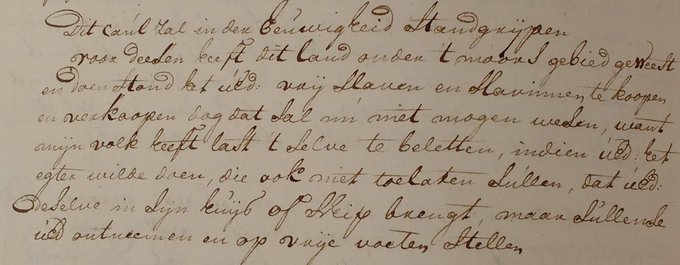 Dit Caúl zal in der Eeuwigheid Standgrypen
voor deesen heeft dit land onder 't moors gebied geweest
en doen stond het úEd: vrij Slaven en Slavinnen te koopen
en verkoopen dog dat Sal nú niet mogen wesen, want
mijn volk heeft last 't Selve te beletten, indien úEd: het
egter wilde doen, die ook niet toelaten Súllen, dat úEd:
deselve in Sijn húijs of Schip brengt, maar Súllen Se
úEd ontneemen en op vrije voeten Stellen